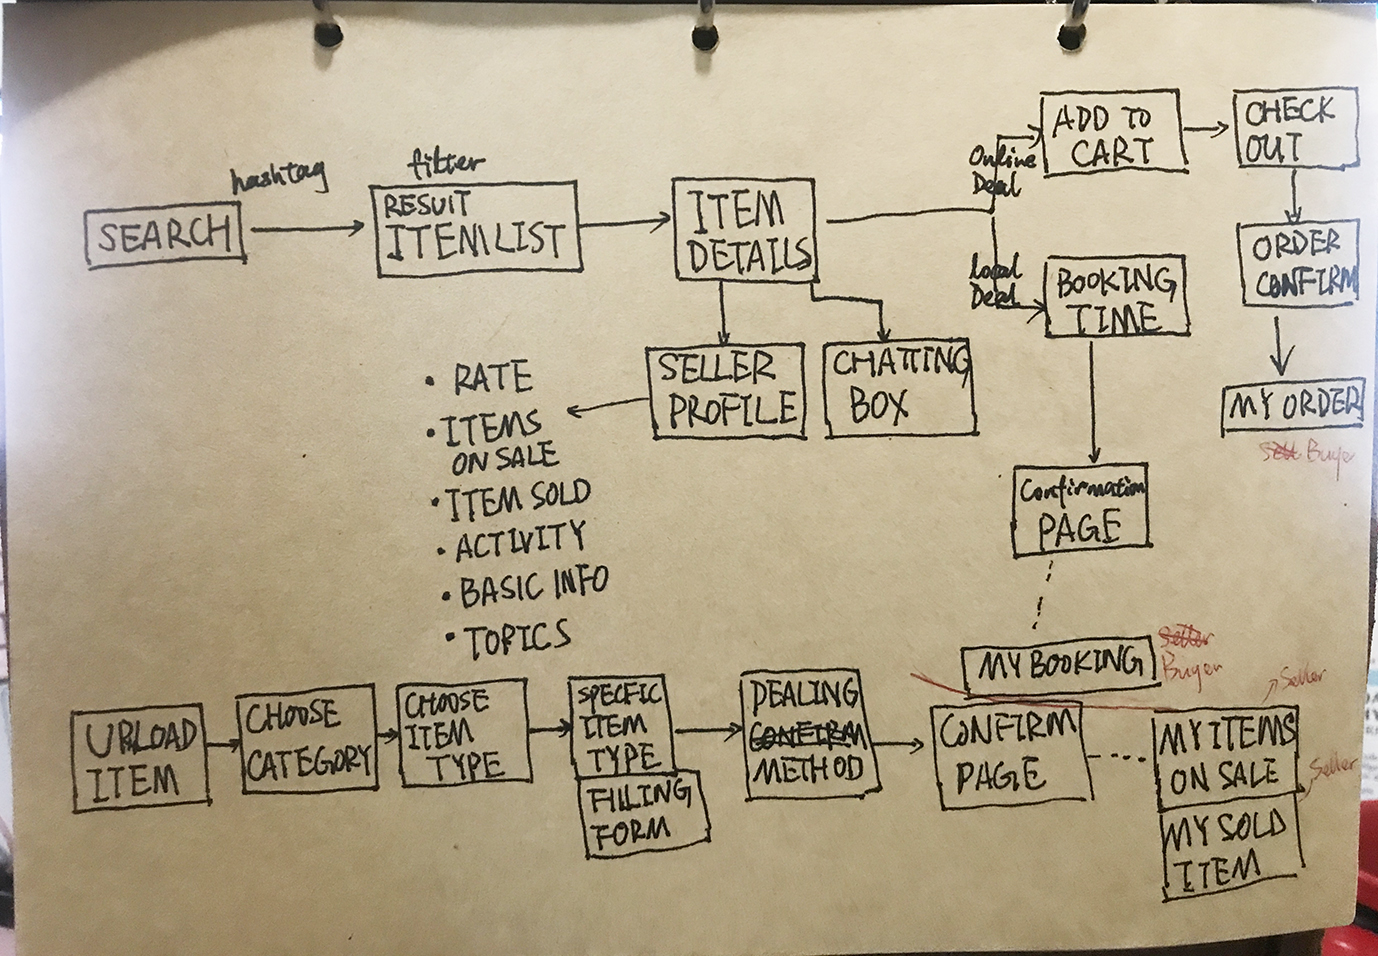 hashtag
SEARCH
filter
RESUIT
ITEM LIST
ITEM
DETAILS
Online
Deal
ADD TO
CART
CHECK
OUT
Local
Deal
BOOKING
TIME
ORDER
CONFIRM
MY ORDER
Buyer
SELLER
PROFILE
CHATTING
BOX
• RATE
• ITEMS
ON SALE
• ITEM SOLD
• ACTIVITY
• BASIC INFO
• TOPICS
Confirmation
PAGE
MY BOOKING
Seller
Buyer
UPLOAD
ITEM
CHOOSE
CATEGORY
CHOOSE
ITEM
TYPE
SPECFIC
ITEM
TYPE
FILLING
FORM
DEALING
CONFIRM
METHOD
CONFIRM
PAGE
Seller
MY ITEMS
ON SALE
Seller
MY SOLD
ITEM